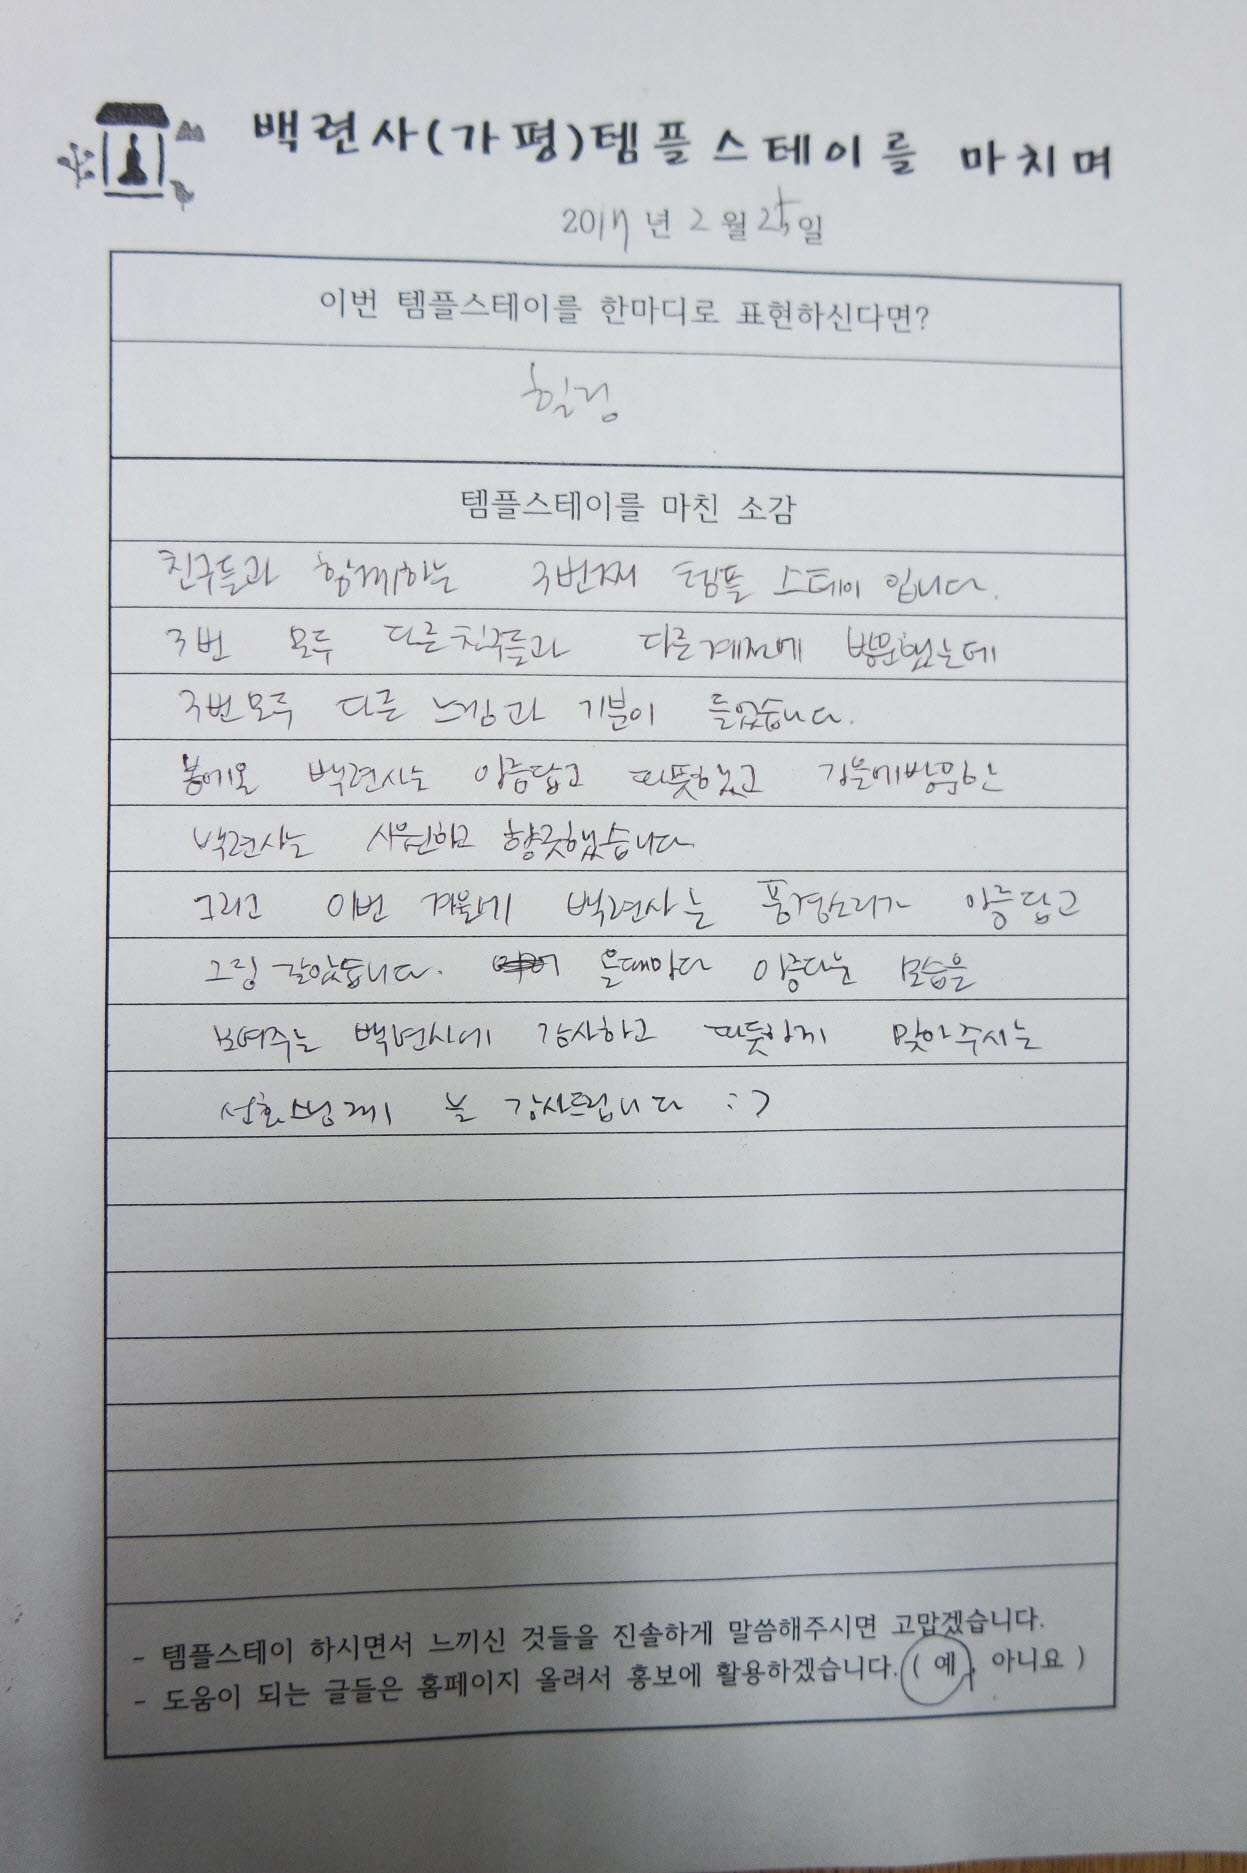 백련사(가평)템플스테이를 마치며
2017년 2월 25일
이번 템플스테이를 한마디로 표현하신다면?
힐링
템플스테이를 마친 소감
친구들과 함께하는 3번째 템플 스테이 입니다.
3번 모두 다른친구들과 다른계절에 방문했는데
3번모두 다른 느낌과 기분이 들었습니다.
봄에온 백련사는 아름답고 따뜻했고 가을에방문한
백련사는 시원하고 향긋했습니다.
그리고 이번 겨울에 백련사는 풍경소리가 아름답고
그림 같았습니다. 올때마다 아름다운 모습을
보여주는 백련사에 감사하고 따듯하게 맞아주시는
선효스님께 늘 감사드립니다 :)
- 템플스테이 하시면서 느끼신 것들을 진솔하게 말씀해주시면 고맙겠습니다.
- 도움이 되는 글들은 홈페이지 올려서 홍보에 활용하겠습니다. ( 예, 아니요 )